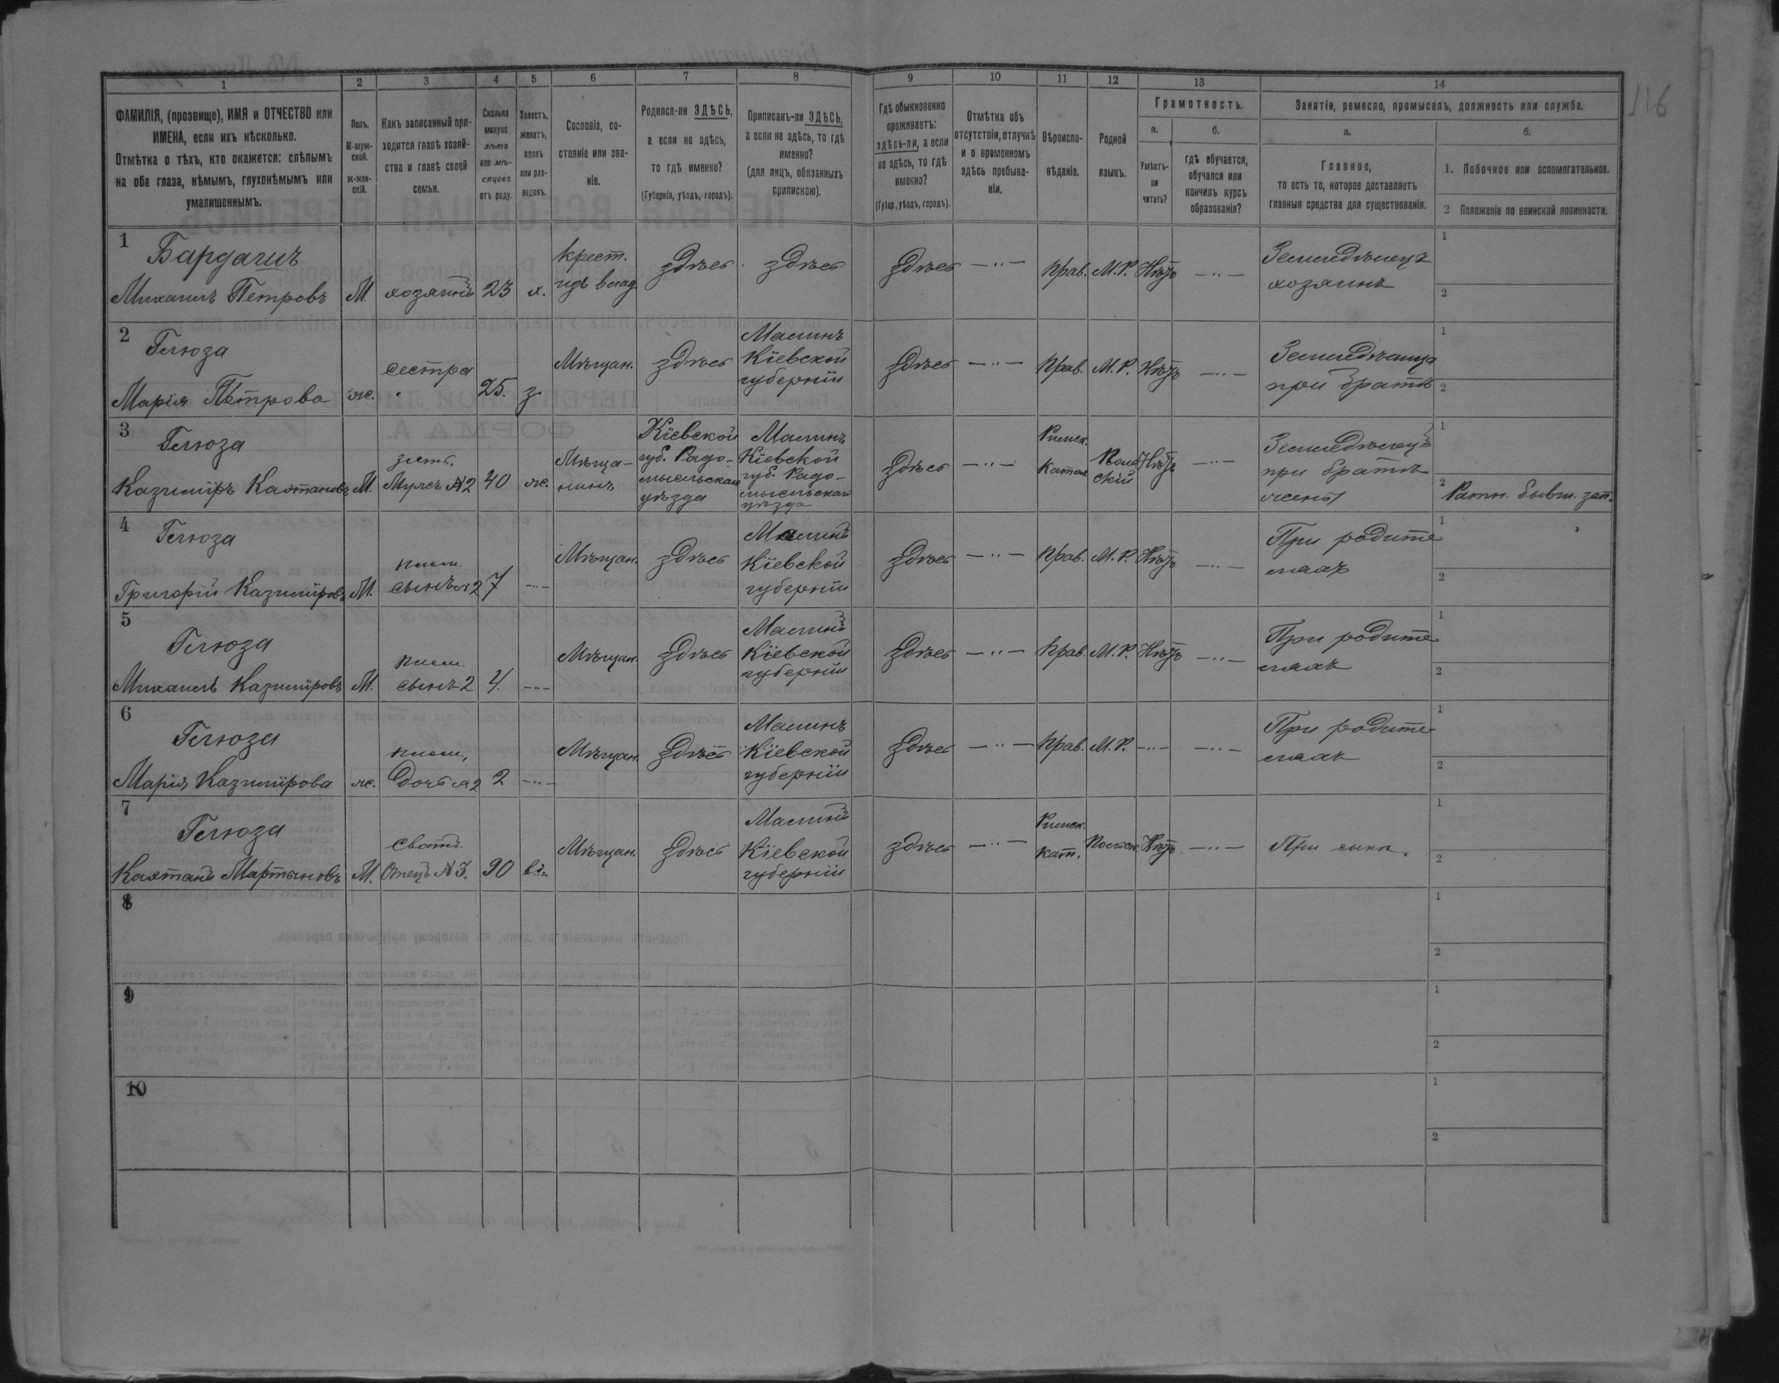 116
1 2 3 4 5 6 7 8 9 10 11 12 13 14
ФАМИЛІЯ, (прозвище), ИМЯ и ОТЧЕСТВО или
ИМЕНА, если ихъ нѣсколько.
Отмѣтка о тѣхъ, кто окажется: слѣпымъ
на оба глаза, нѣмымъ, глухонѣмымъ или
умалишеннымъ.
Полъ.
М-муж-
ской.
ж-жен-
скій.
Какъ записанный при-
ходится главѣ хозяй-
ства и главѣ своей
семьи.
Сколько
минуло
лѣтъ
или мѣ-
сяцевъ
отъ роду.
Холостъ,
женатъ,
вдовъ
или раз-
веденъ.
Сословіе, со-
стояніе или зва-
ніе.
Родился-ли ЗДѢСЬ,
а если не здѣсь,
то гдѣ именно?
(Губернія, уѣздъ, городъ).
Приписанъ-ли ЗДѢСЬ,
а если не здѣсь, то гдѣ
именно?
(для лицъ, обязанныхъ
припискою).
Гдѣ обыкновенно
проживаетъ:
здѣсь-ли, а если
не здѣсь, то гдѣ
именно?
(Губер., уѣздъ, городъ).
Отмѣтка объ
отсутствіи, отлучкѣ
и о временномъ
здѣсь пребыва-
ніи.
Вѣроиспо-
вѣданіе.
Родной
языкъ.
Грамотность.
а.
Умѣетъ-
ли
читать?
б.
гдѣ обучается,
обучался или
кончилъ курсъ
образованія?
Занятія, ремесло, промыселъ, должность или служба.
а.
Главное,
то есть то, которое доставляетъ
главныя средства для существованія.
б.
1. Побочное или вспомогательное.
2 Положеніе по воинской повинности.
1
Бардагиъ
Михаилъ Петровъ М хозяинъ 23 х. крест. здѣсь здѣсь здѣсь прав. М.Р. Нѣтъ Земледѣлецъ
хозяинъ
1
2
2
Гелюза
Марія Петрова ж. сестра 25. з. Мѣщан. здѣсь Малинъ
Кіевской
губерніи здѣсь прав. М.Р. Нѣтъ Земледѣлица
при братѣ
1
2
3
Гелюза
Казиміръ Каэтановъ М. зять.
Мужъ №2 40 ж. Мѣща-
нинъ Кіевской
губ. Радо-
мысльскаго
уѣзда Малинъ
Кіевской
губ. Радо-
мысльскаго
уѣзда здѣсь Римск.
Катол. Поль-
скій Нѣтъ Земледѣлецъ
при братѣ
жены
1
2 Ратн. бывш. зап.
4
Гелюза
Григорій Казиміровъ М. плем.
сынъ №2 7 Мѣщан. здѣсь Малинъ
Кіевской
губерніи здѣсь прав. М.Р. Нѣтъ При родите
ляхъ
1
2
5
Гелюза
Михаилъ Казиміровъ М. плем.
сынъ 2 4. Мѣщан. здѣсь Малинъ
Кіевской
губерніи здѣсь прав. М.Р. Нѣтъ При родите
ляхъ
1
2
6
Гелюза
Марія Казимірова ж. плем.
Дочь №2 2 Мѣщан. здѣсь Малинъ
Кіевской
губерніи здѣсь прав. М.Р. При родите
ляхъ
1
2
7
Гелюза
Каэтанъ Мартыновъ М. сватъ.
Отецъ №3. 90 вд. Мѣщан. здѣсь Малинъ
Кіевской
губерніи здѣсь Римск.
кат. Польск. Нѣтъ При сынѣ.
1
2
8
1
2
9
1
2
10
1
2